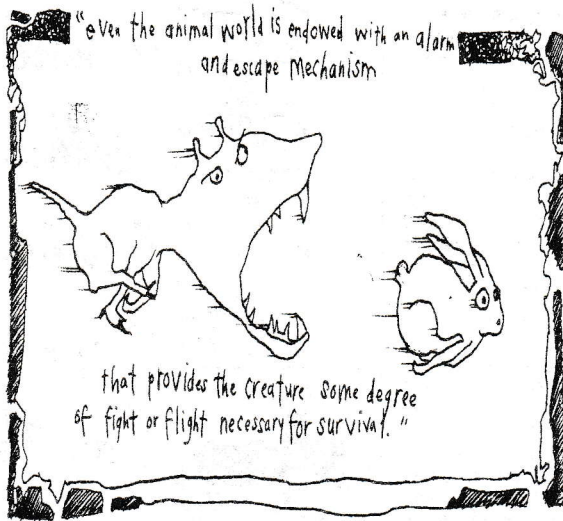 "even the animal world is endowed with an alarm
and escape Mechanism
that provides the creature some degree
of fight or flight necessary for survival."